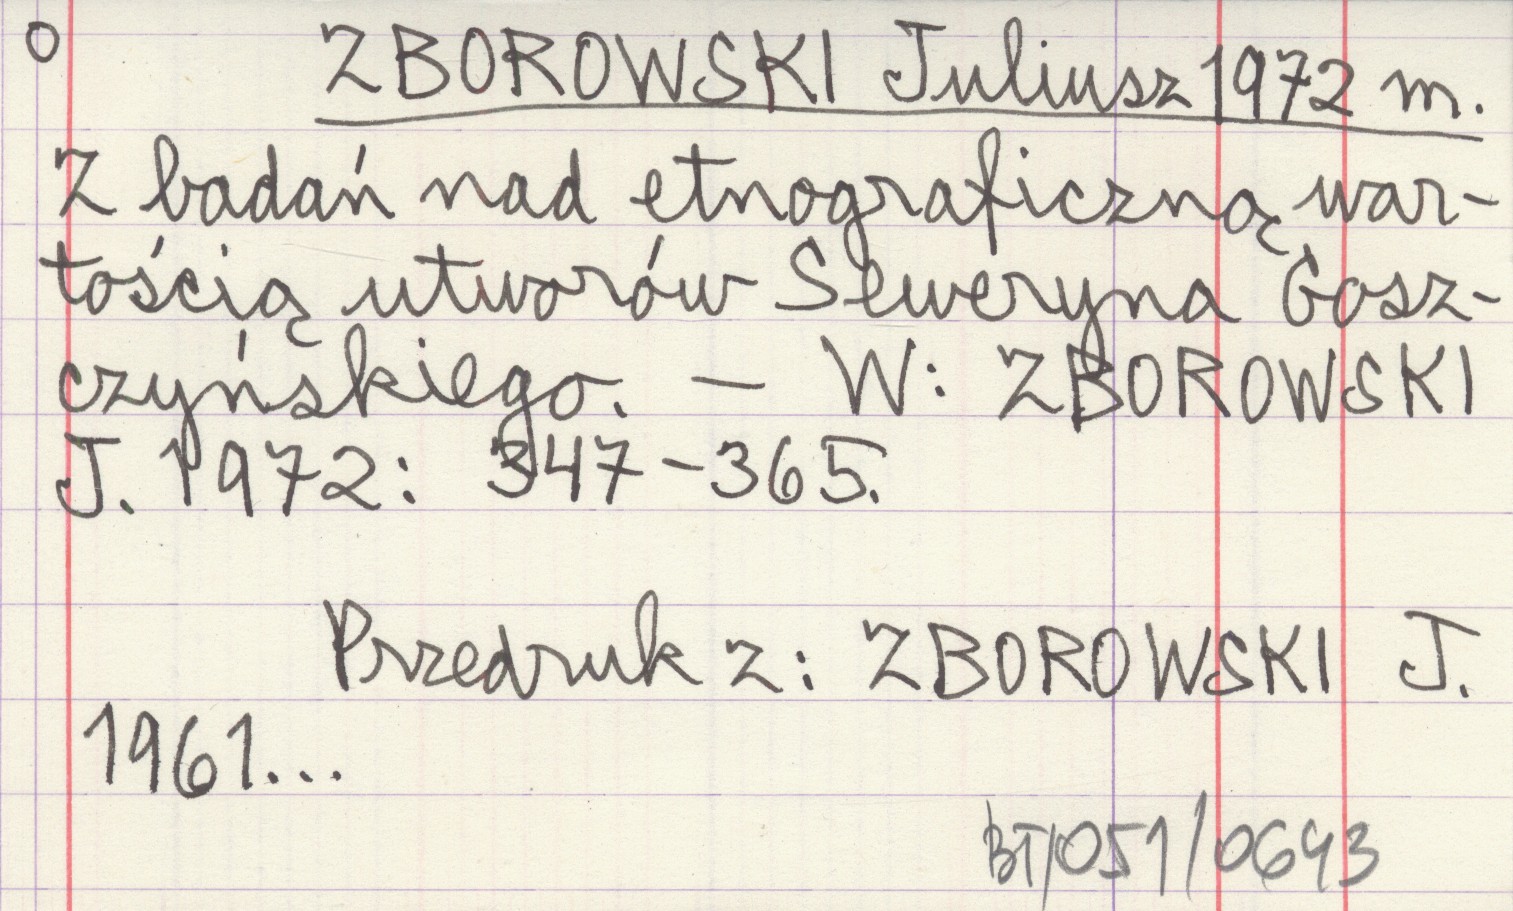 o ZBOROWSKI Juliusz 1972 m.
Z badań nad etnograficzną war-
tością utworów Seweryna Gosz-
czyńskiego. — W: ZBOROWSKI
J. 1972: 347-365.
Przedruk z: ZBOROWSKI J.
1961...
BT/051/0643